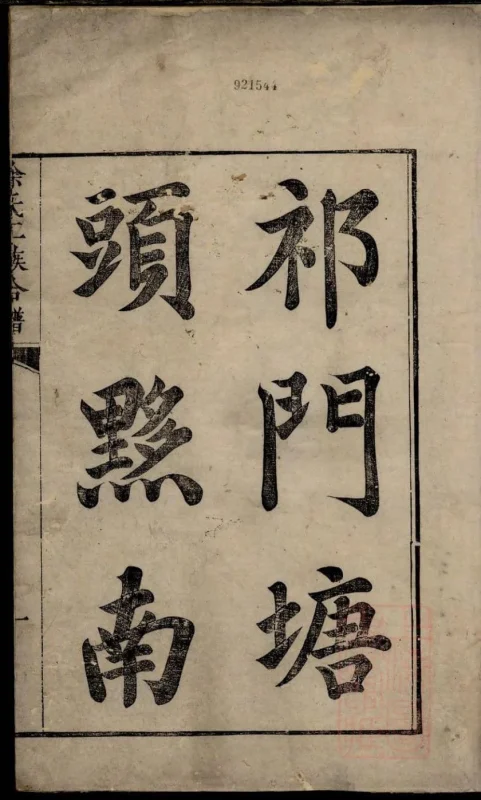 921544
祁門塘
頭黟南
氏二族合譜
一